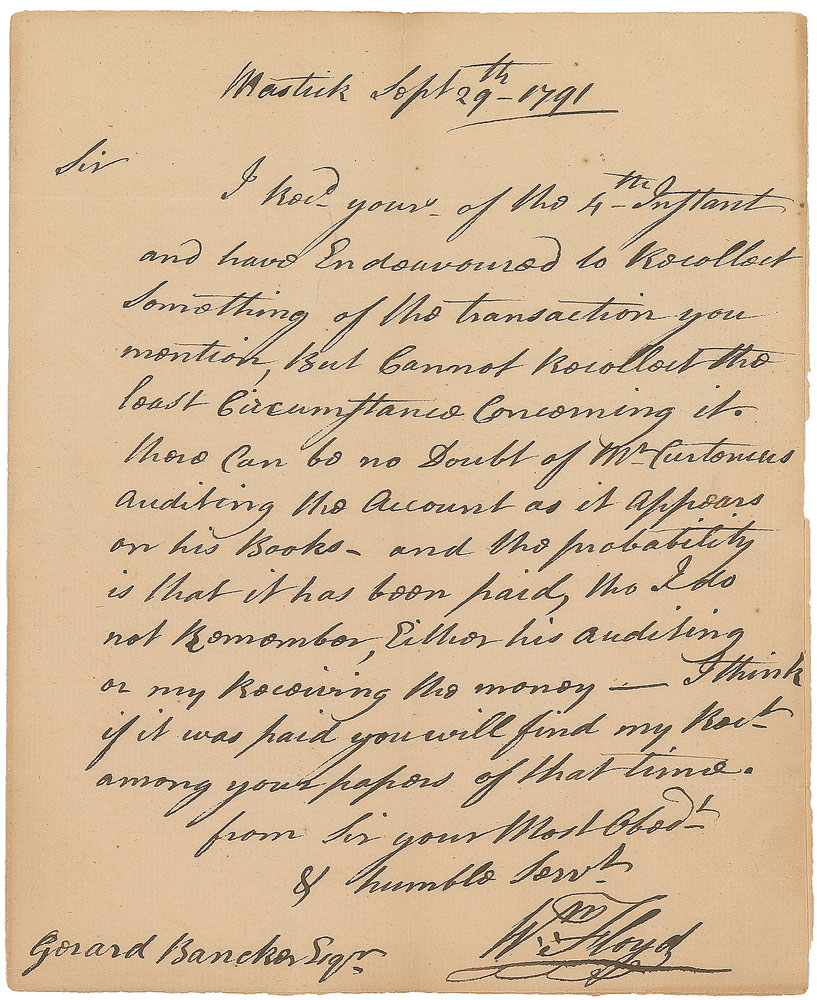 Mastick Sept 29th - 1791
Sir
I Recd yours of the 4th Instant
and have Endeavoured to Recollect
Something of the transaction you
mention, But Cannot Recollect the
least Circumstance Concerning it.
there Can be no Doubt of Mr Curteniuss
auditing the Account as it appears
on his Books - and the probability
is that it has been paid, tho I do
not Remember, Either his auditing
or my Receiving the money — I think
if it was paid you will find my Rect
among your papers of that time.
from Sir your Most Obedt
& humble Servt
Wm Floyd
Gerard Bancker Esqr